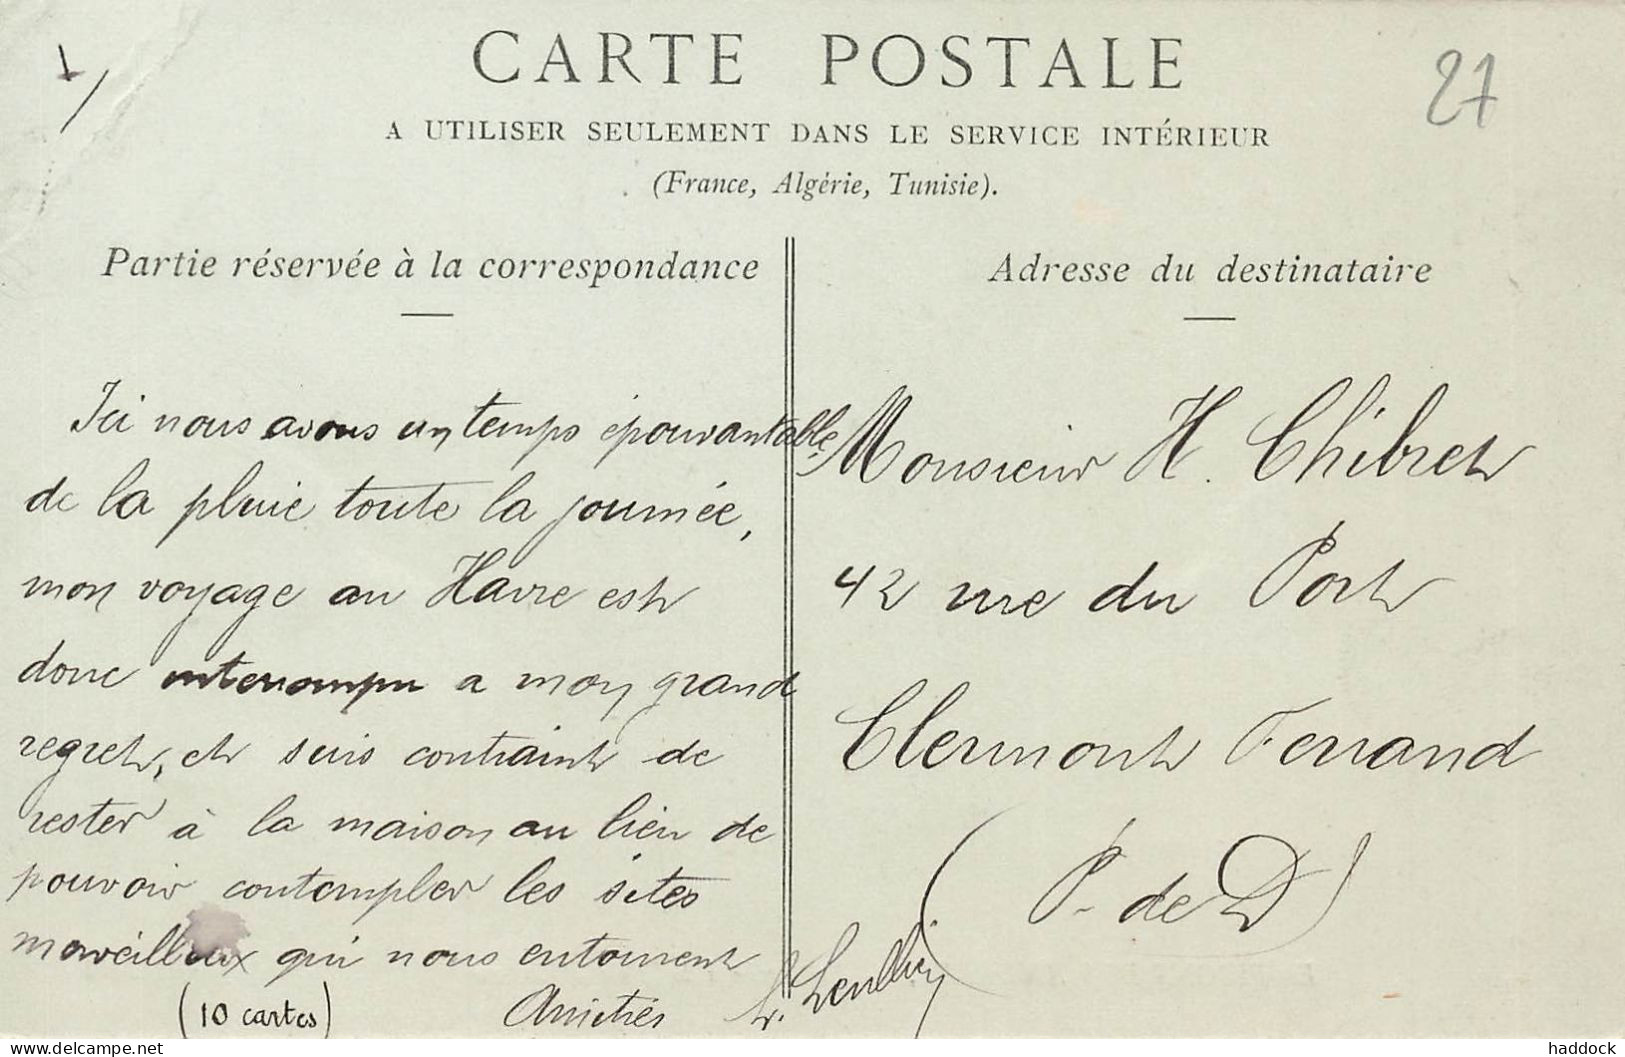 CARTE POSTALE
A UTILISER SEULEMENT DANS LE SERVICE INTÉRIEUR
(France, Algérie, Tunisie).
27
Partie réservée à la correspondance
Ici nous avons un temps épouvantable,
de la pluie toute la journée,
mon voyage au Havre est
donc interrompu a mon grand
regret, et suis contraint de
rester à la maison au lieu de
pouvoir contempler les sites
merveilleux qui nous entourent
(10 cartes) Amitiés
Adresse du destinataire
Monsieur H. Chibret
42 rue du Port
Clermont Ferrand
(P. de D)
delcampe.net
haddock